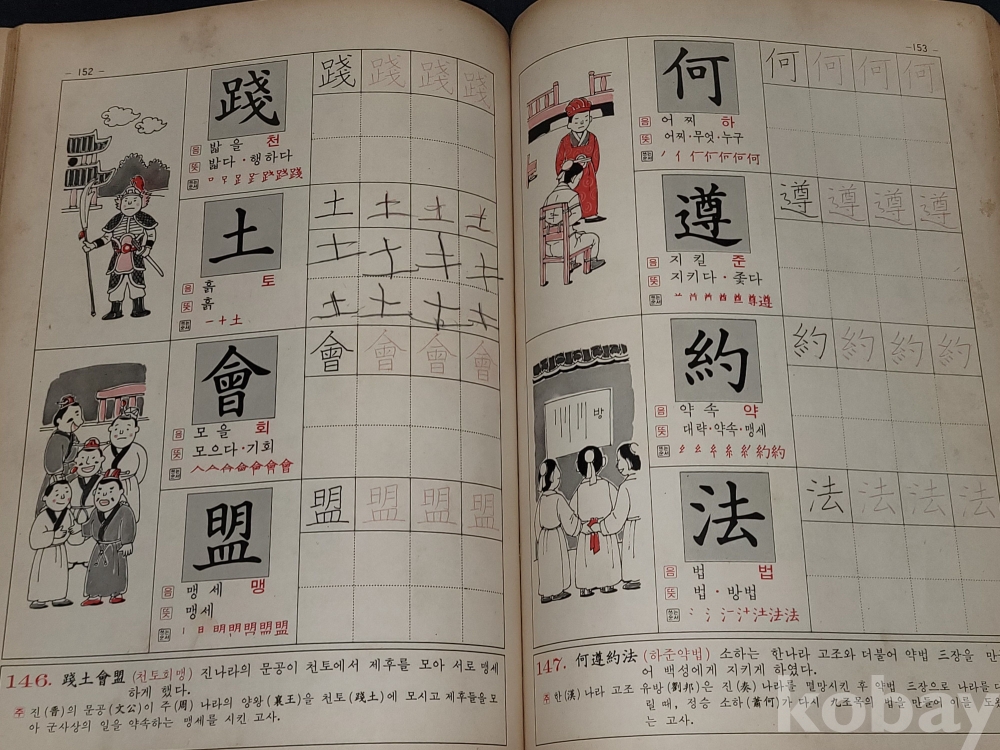 - 152 -
踐 踐 踐 踐 踐
음 밟을 천
뜻 밟다·행하다
土 土 土 土 土
土 土 土 土
土 土 土 土
음 흙 토
뜻 흙
一 十 土
會 會 會 會 會
음 모을 회
뜻 모으다·기회
盟 盟 盟 盟 盟
음 맹세 맹
뜻 맹세
146. 踐土會盟 (천토회맹) 진나라의 문공이 천토에서 제후를 모아 서로 맹세
하게 했다.
주 진(晋)의 문공(文公)이 주(周) 나라의 양왕(襄王)을 천토(踐土)에 모시고 제후들을 모
아 군사상의 일을 약속하는 맹세를 시킨 고사.
-153-
何 何 何 何 何
음 어찌 하
뜻 어찌·무엇·누구
遵 遵 遵 遵 遵
음 지킬 준
뜻 지키다·좇다
방
約 約 約 約 約
음 약속 약
뜻 대략·약속·맹세
法 法 法 法 法
음 법 법
뜻 법·방법
147. 何遵約法 (하준약법) 소하는 한나라 고조와 더불어 약법 三장을 만
어 백성에게 지키게 하였다.
주 한(漢)나라 고조 유방(劉邦)은 진(秦)나라를 멸망시킨 후 약법 三장으로 나라를 다
릴 때, 정승 소하(蕭何)가 다시 九조목의 법을 만들어 이를 도
는 고사.
kobay